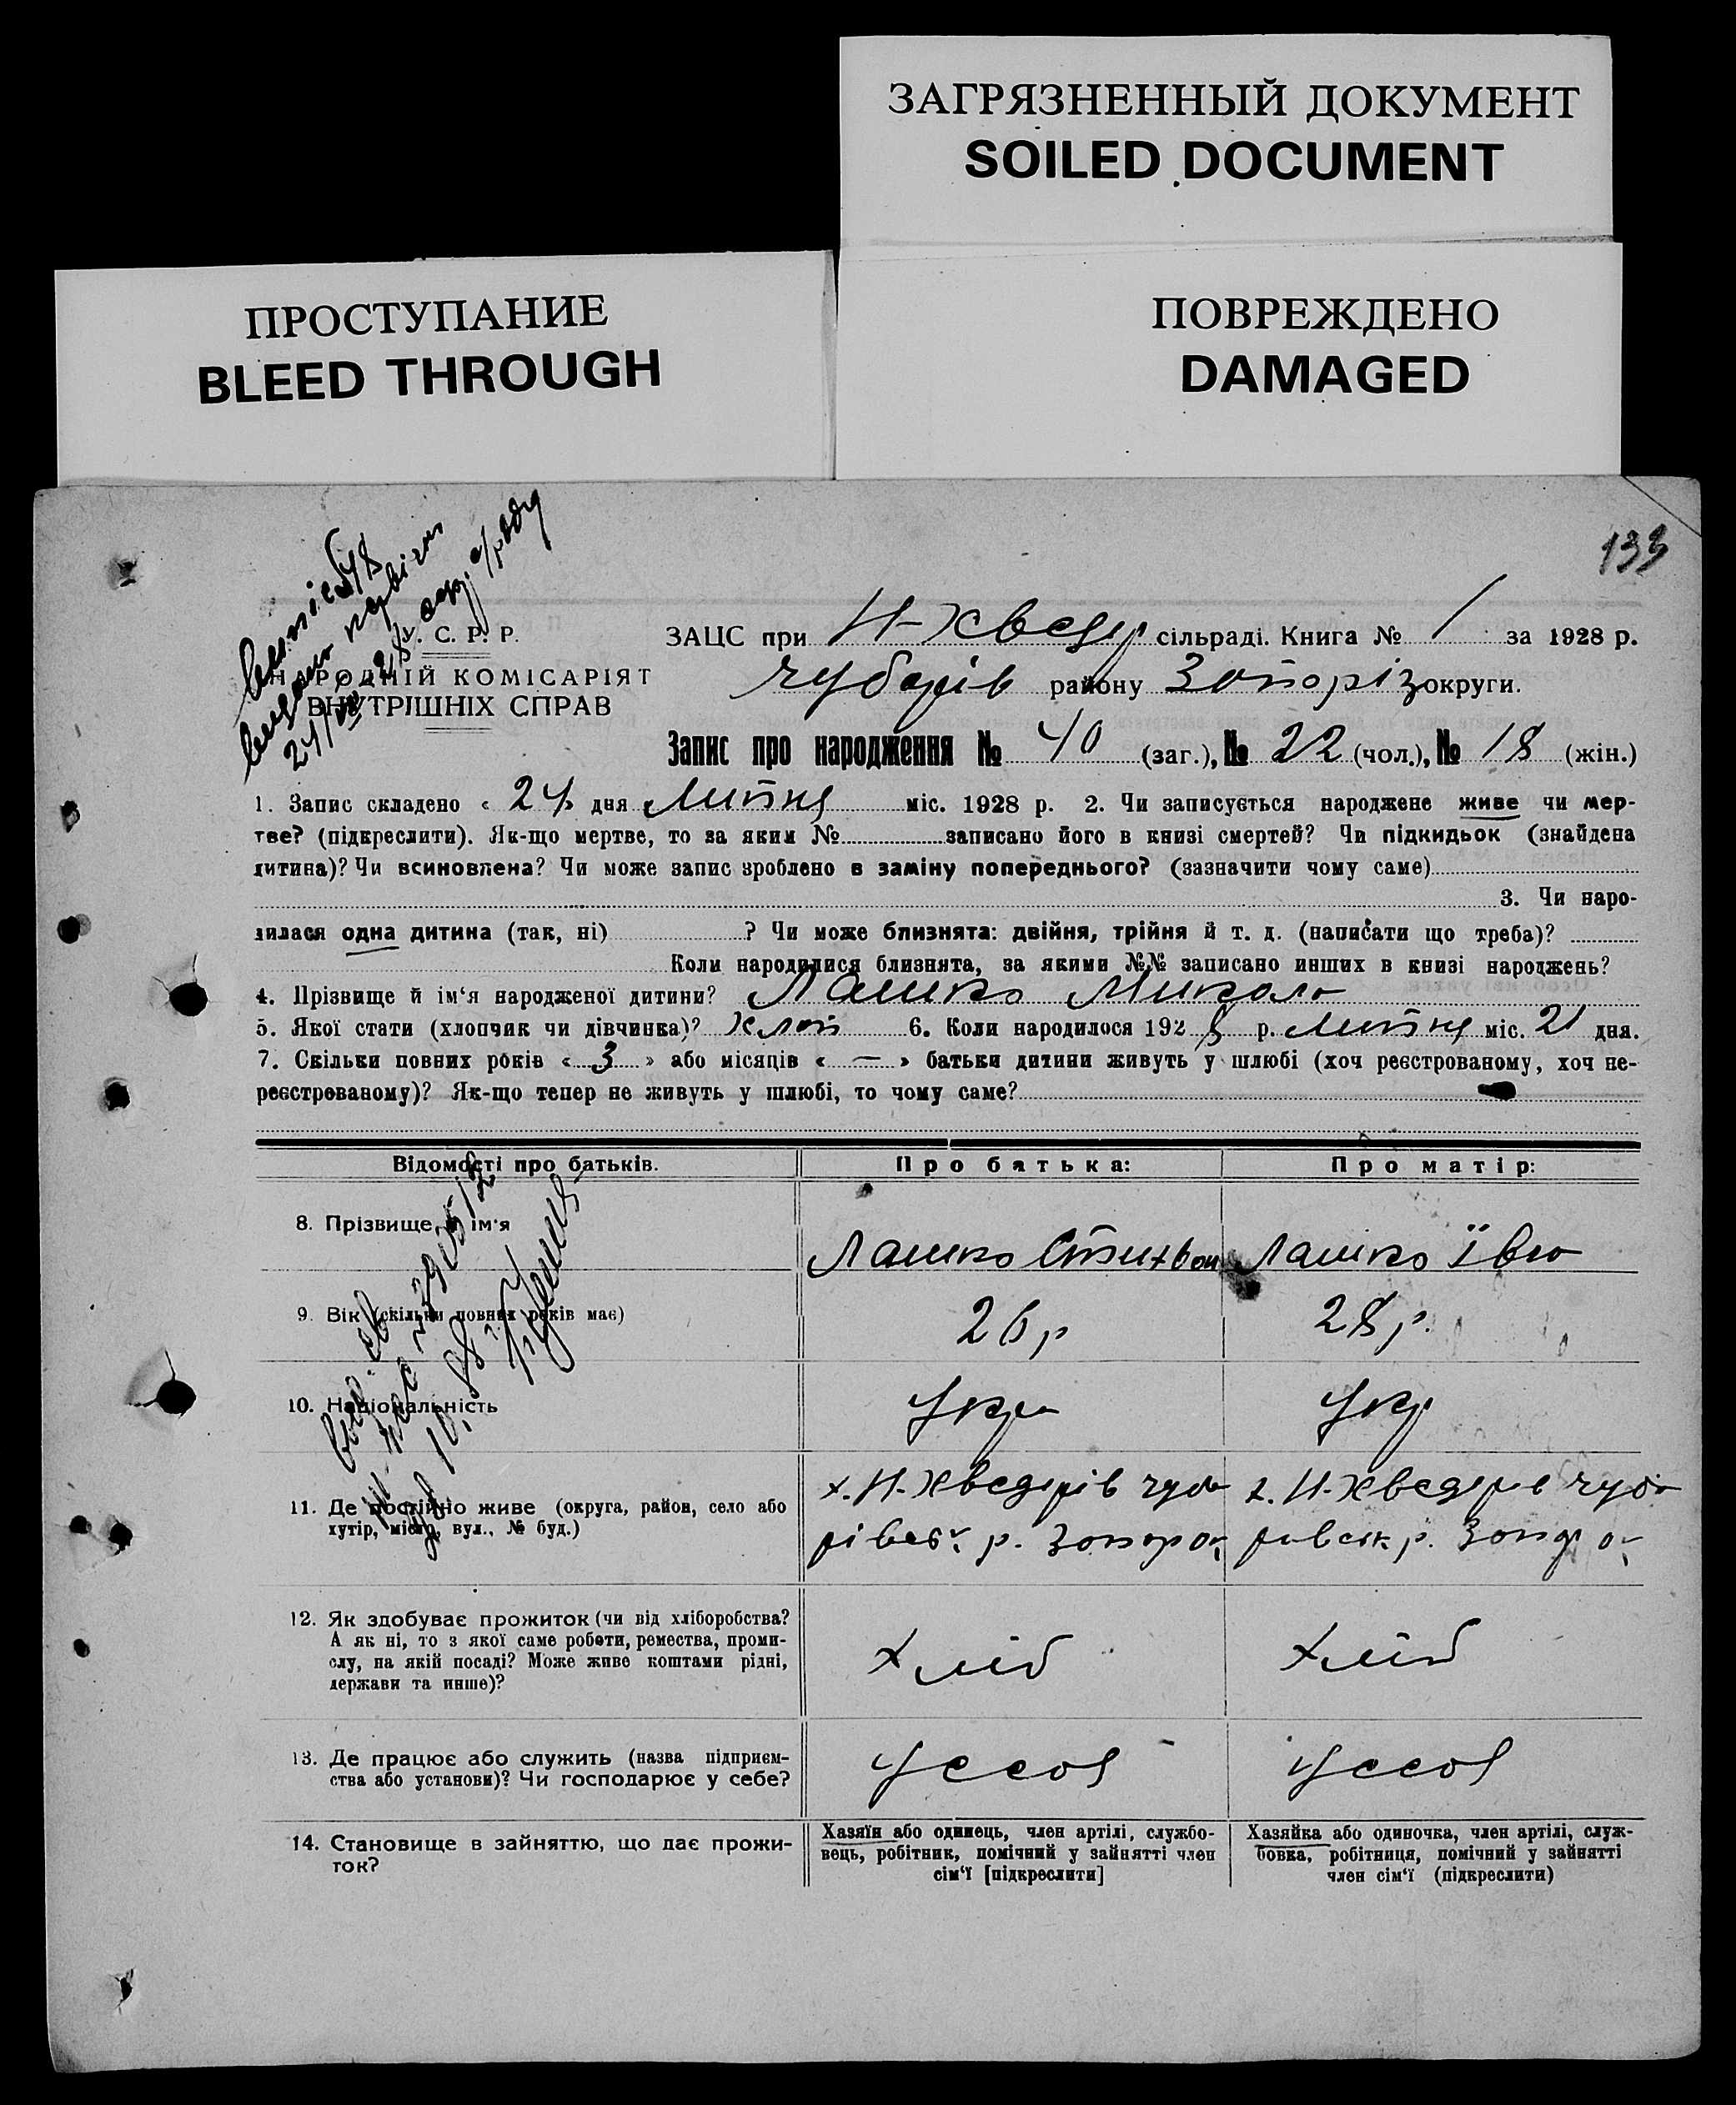 ЗАГРЯЗНЕННЫЙ ДОКУМЕНТ
SOILED DOCUMENT
ПРОСТУПАНИЕ
BLEED THROUGH
ПОВРЕЖДЕНО
DAMAGED
133
У. С. Р. Р.
НАРОДНІЙ КОМІСАРІЯТ
ВНУТРІШНІХ СПРАВ
ЗАЦС при Н-Хведер сільраді. Книга № 1 за 1928 р.
Чубарів району Запоріз округи.
Запис про народження № 40 (заг.), № 22 (чол.), № 18 (жін.)
1. Запис складено « 24 » дня Липня міс. 1928 р. 2. Чи записується народжене живе чи мер-
тве? (підкреслити). Як-що мертве, то за яким № записано його в книзі смертей? Чи підкидьок (знайдена
дитина)? Чи всиновлена? Чи може запис зроблено в заміну попереднього? (зазначити чому саме)
3. Чи наро-
дилася одна дитина (так, ні) ? Чи може близнята: двійня, трійня й т. д. (написати що треба)?
Коли народилися близнята, за якими №№ записано инших в книзі народжень?
4. Прізвище й ім‘я народженої дитини? Лашко Микола
5. Якої стати (хлопчик чи дівчинка)? Хлоп 6. Коли народилося 1928 р. Липня міс. 21 дня.
7. Скільки повних років « 3 » або місяців « — » батьки дитини живуть у шлюбі (хоч реєстрованому, хоч не-
реєстрованому)? Як-що тепер не живуть у шлюбі, то чому саме?
Відомості про батьків. Про батька: Про матір:
8. Прізвище й ім‘я Лашко Лашко Ївга
9. Вік (скільки повних років має) 26 р 28 р.
10. Національність Укра Укр
11. Де постійно живе (округа, район, село або х. Н-Хведерів Чуба х. Н-Хведерів Чуба
хутір, місто, вул., № буд.) р. Запор ок рівськ р. Запор ок
12. Як здобуває прожиток (чи від хліборобства?
А як ні, то з якої саме роботи, ремества, проми-
слу, на якій посаді? Може живе коштами рідні, Хліб Хліб
держави та инше)?
13. Де працює або служить (назва підприєм- У себя У себя
ства або установи)? Чи господарює у себе?
14. Становище в зайняттю, що дає прожи-
ток?
Хазяїн або одинець, член артілі, службо-
вець, робітник, помічний у зайнятті член
сім‘ї [підкреслити]
Хазяйка або одиночка, член артілі, служ-
бовка, робітниця, помічний у зайнятті
член сім‘ї (підкреслити)